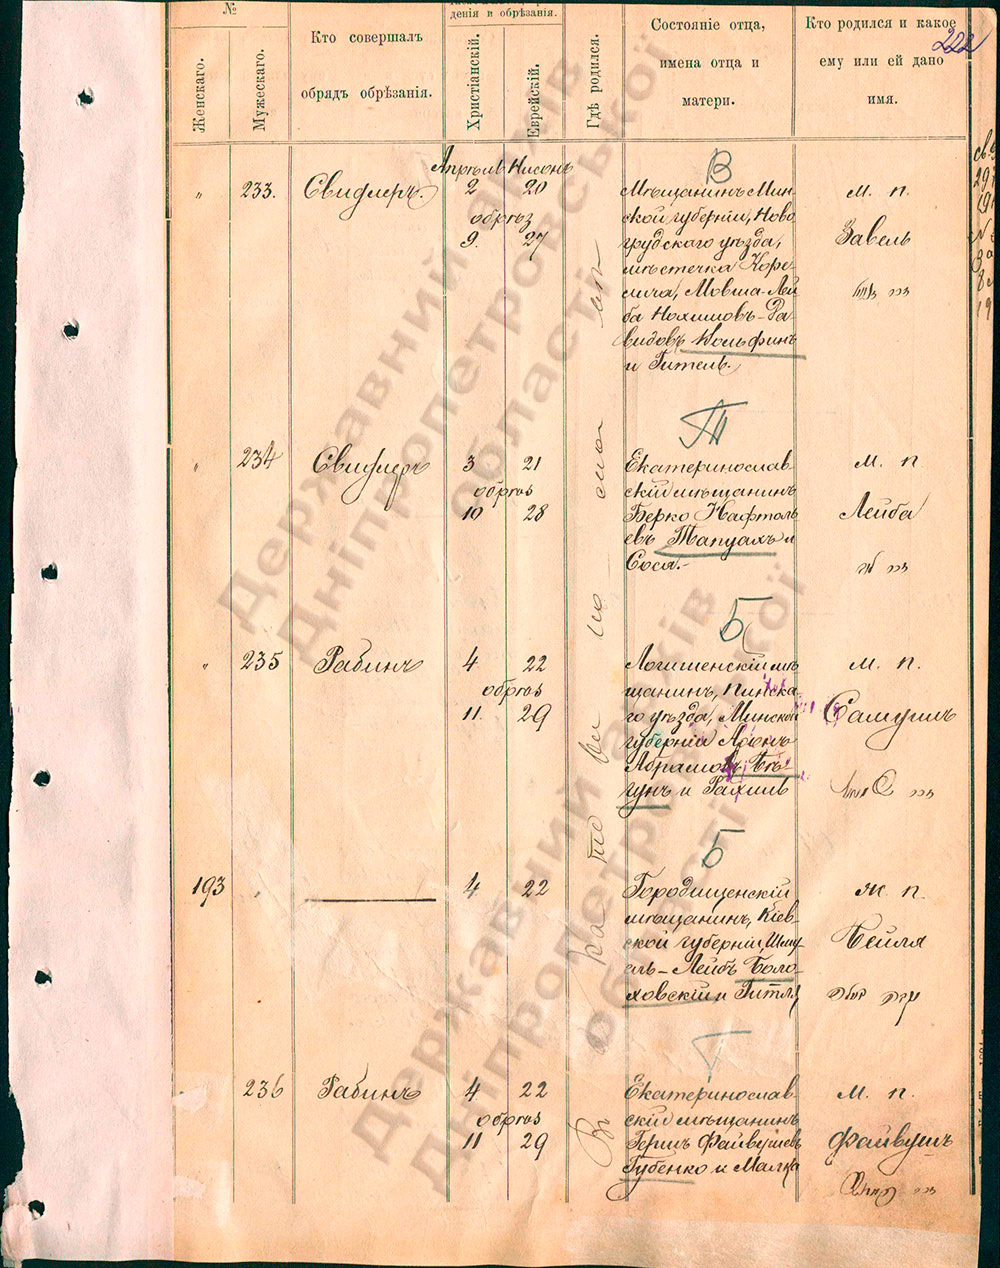 222
№
Женскаго.
Мужескаго.
Кто совершалъ
обрядъ обрѣзанія.
денія и обрѣзанія.
Христіанскій.
Еврейскій.
Гдѣ родился.
Состояніе отца,
имена отца и
матери.
Кто родился и какое
ему или ей дано
имя.
В
Апрѣль Нисонъ
" 233. Свидлеръ. 2 20
обрѣз
9. 27
Мѣщанинъ Мин-
ской губерніи, Ново
грудского уѣзда,
мѣстечка Коре-
лича, Мовша-Лей
ба Нохимовъ-Да-
видовъ Вольфинъ
и Гитель.
м. п.
Завель
Т
" 234 Свидлеръ 3 21
обрѣз
10 28
Екатеринослав-
скій мѣщанинъ
Берко Нафтоль
евъ Тапуахъ и
Сося.-
м. п
Лейба
Б
" 235 Рабинъ 4 22
обрѣз
11. 29
Логишенскій мѣ
щанинъ, Пинска-
го уѣзда, Минской
губерніи Аронъ
Абрамовъ Бѣ-
гунъ и Рахиль
м. п.
Самуилъ
Б
193 " 4 22
Городищенскій
мѣщанинъ, Кіев-
ской губерніи, Шму-
ель-Лейбъ Боло-
ховскій и Гитля
ж. п.
Бейля
Г
236 Рабинъ 4 22
обрѣз
11 29
Екатеринослав-
скій мѣщанинъ
Гершъ Файвушевъ
Губенко и Малка
м. п.
Файвушъ
Въ
Державний архів
Дніпропетровської
області
Державний архів
Дніпропетровської
області